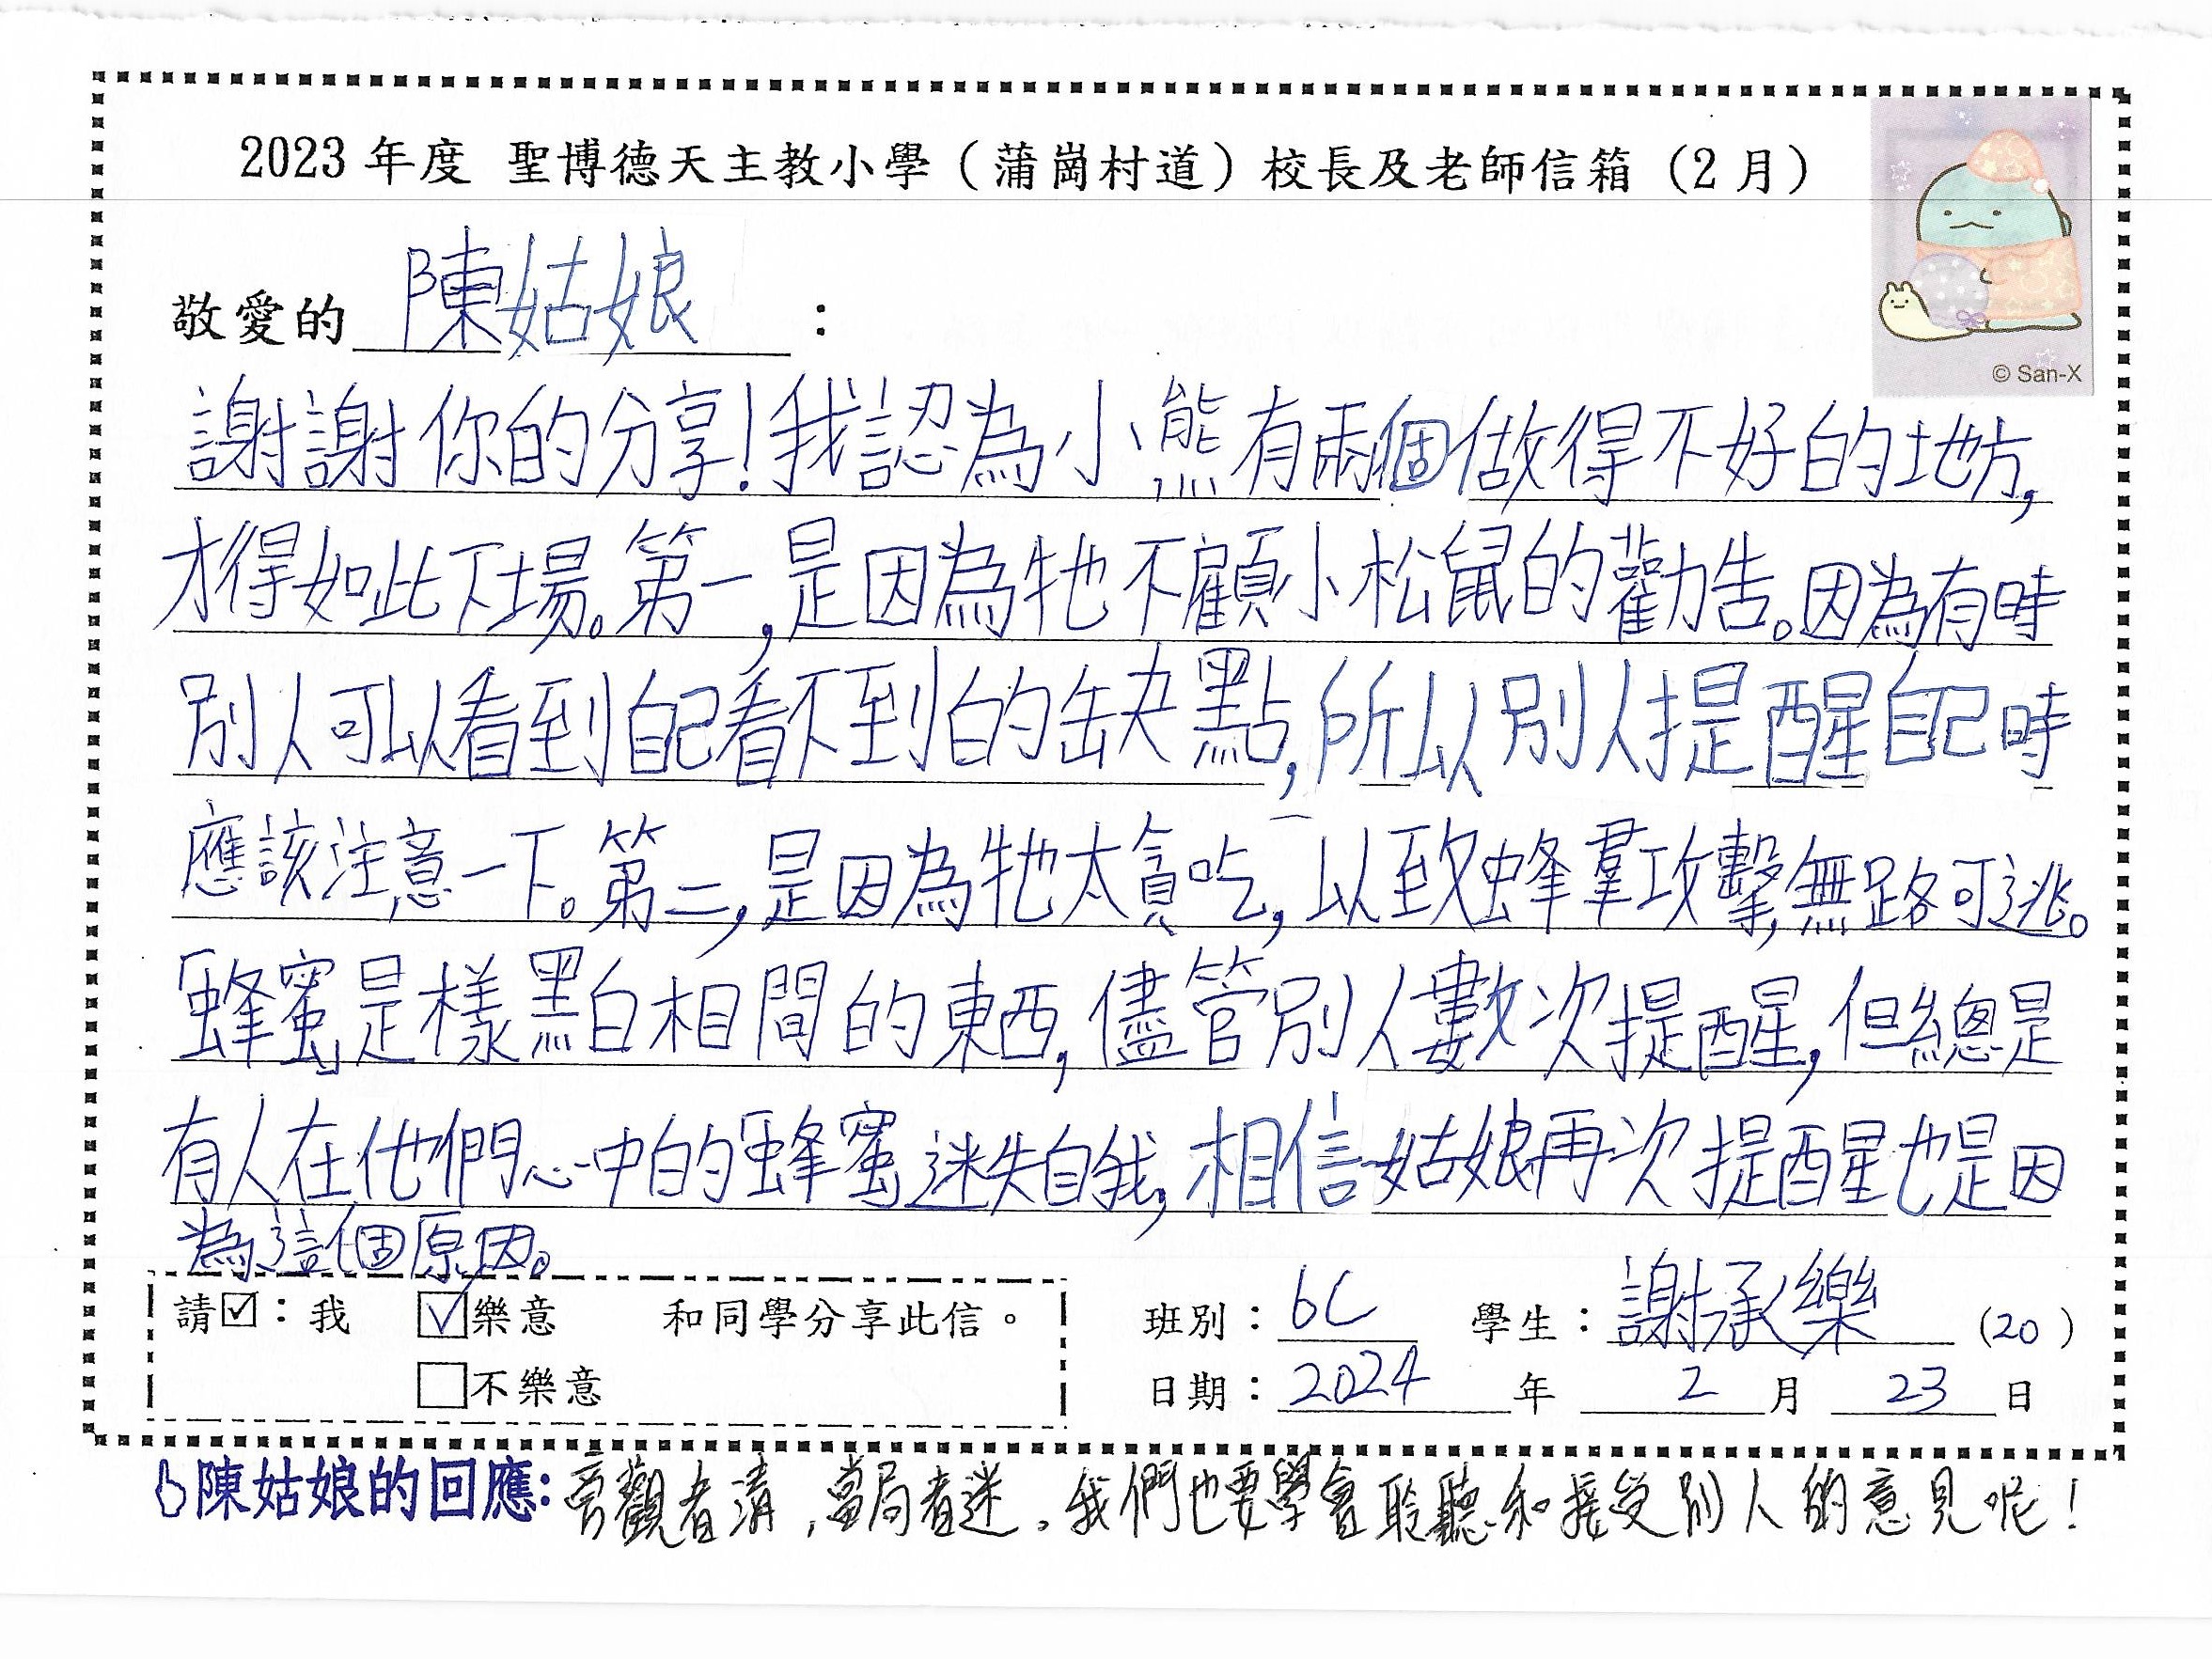 2023 年度 聖博德天主教小學（蒲崗村道）校長及老師信箱（2 月）
© San-X
敬愛的 陳姑娘 ：
謝謝你的分享!我認為小熊有兩個做得不好的地方,
才得如此下場。第一,是因為牠不顧小松鼠的勸告。因為有時
別人可以看到自己看不到的缺點,所以別人提醒自己時
應該注意一下。第二,是因為牠太貪吃,以致蜂羣攻擊,無路可逃。
「蜂蜜」是樣黑白相間的東西,儘管別人數次提醒,但總是
有人在他們心中的「蜂蜜」迷失自我,相信姑娘再次提醒也是因
為這個原因。
請☑：我 ☑樂意 和同學分享此信。
□不樂意
班別：6C 學生：謝承樂 (20)
日期：2024 年 2 月 23 日
陳姑娘的回應:旁觀者清,當局者迷。我們也要學會聆聽和接受別人的意見呢!